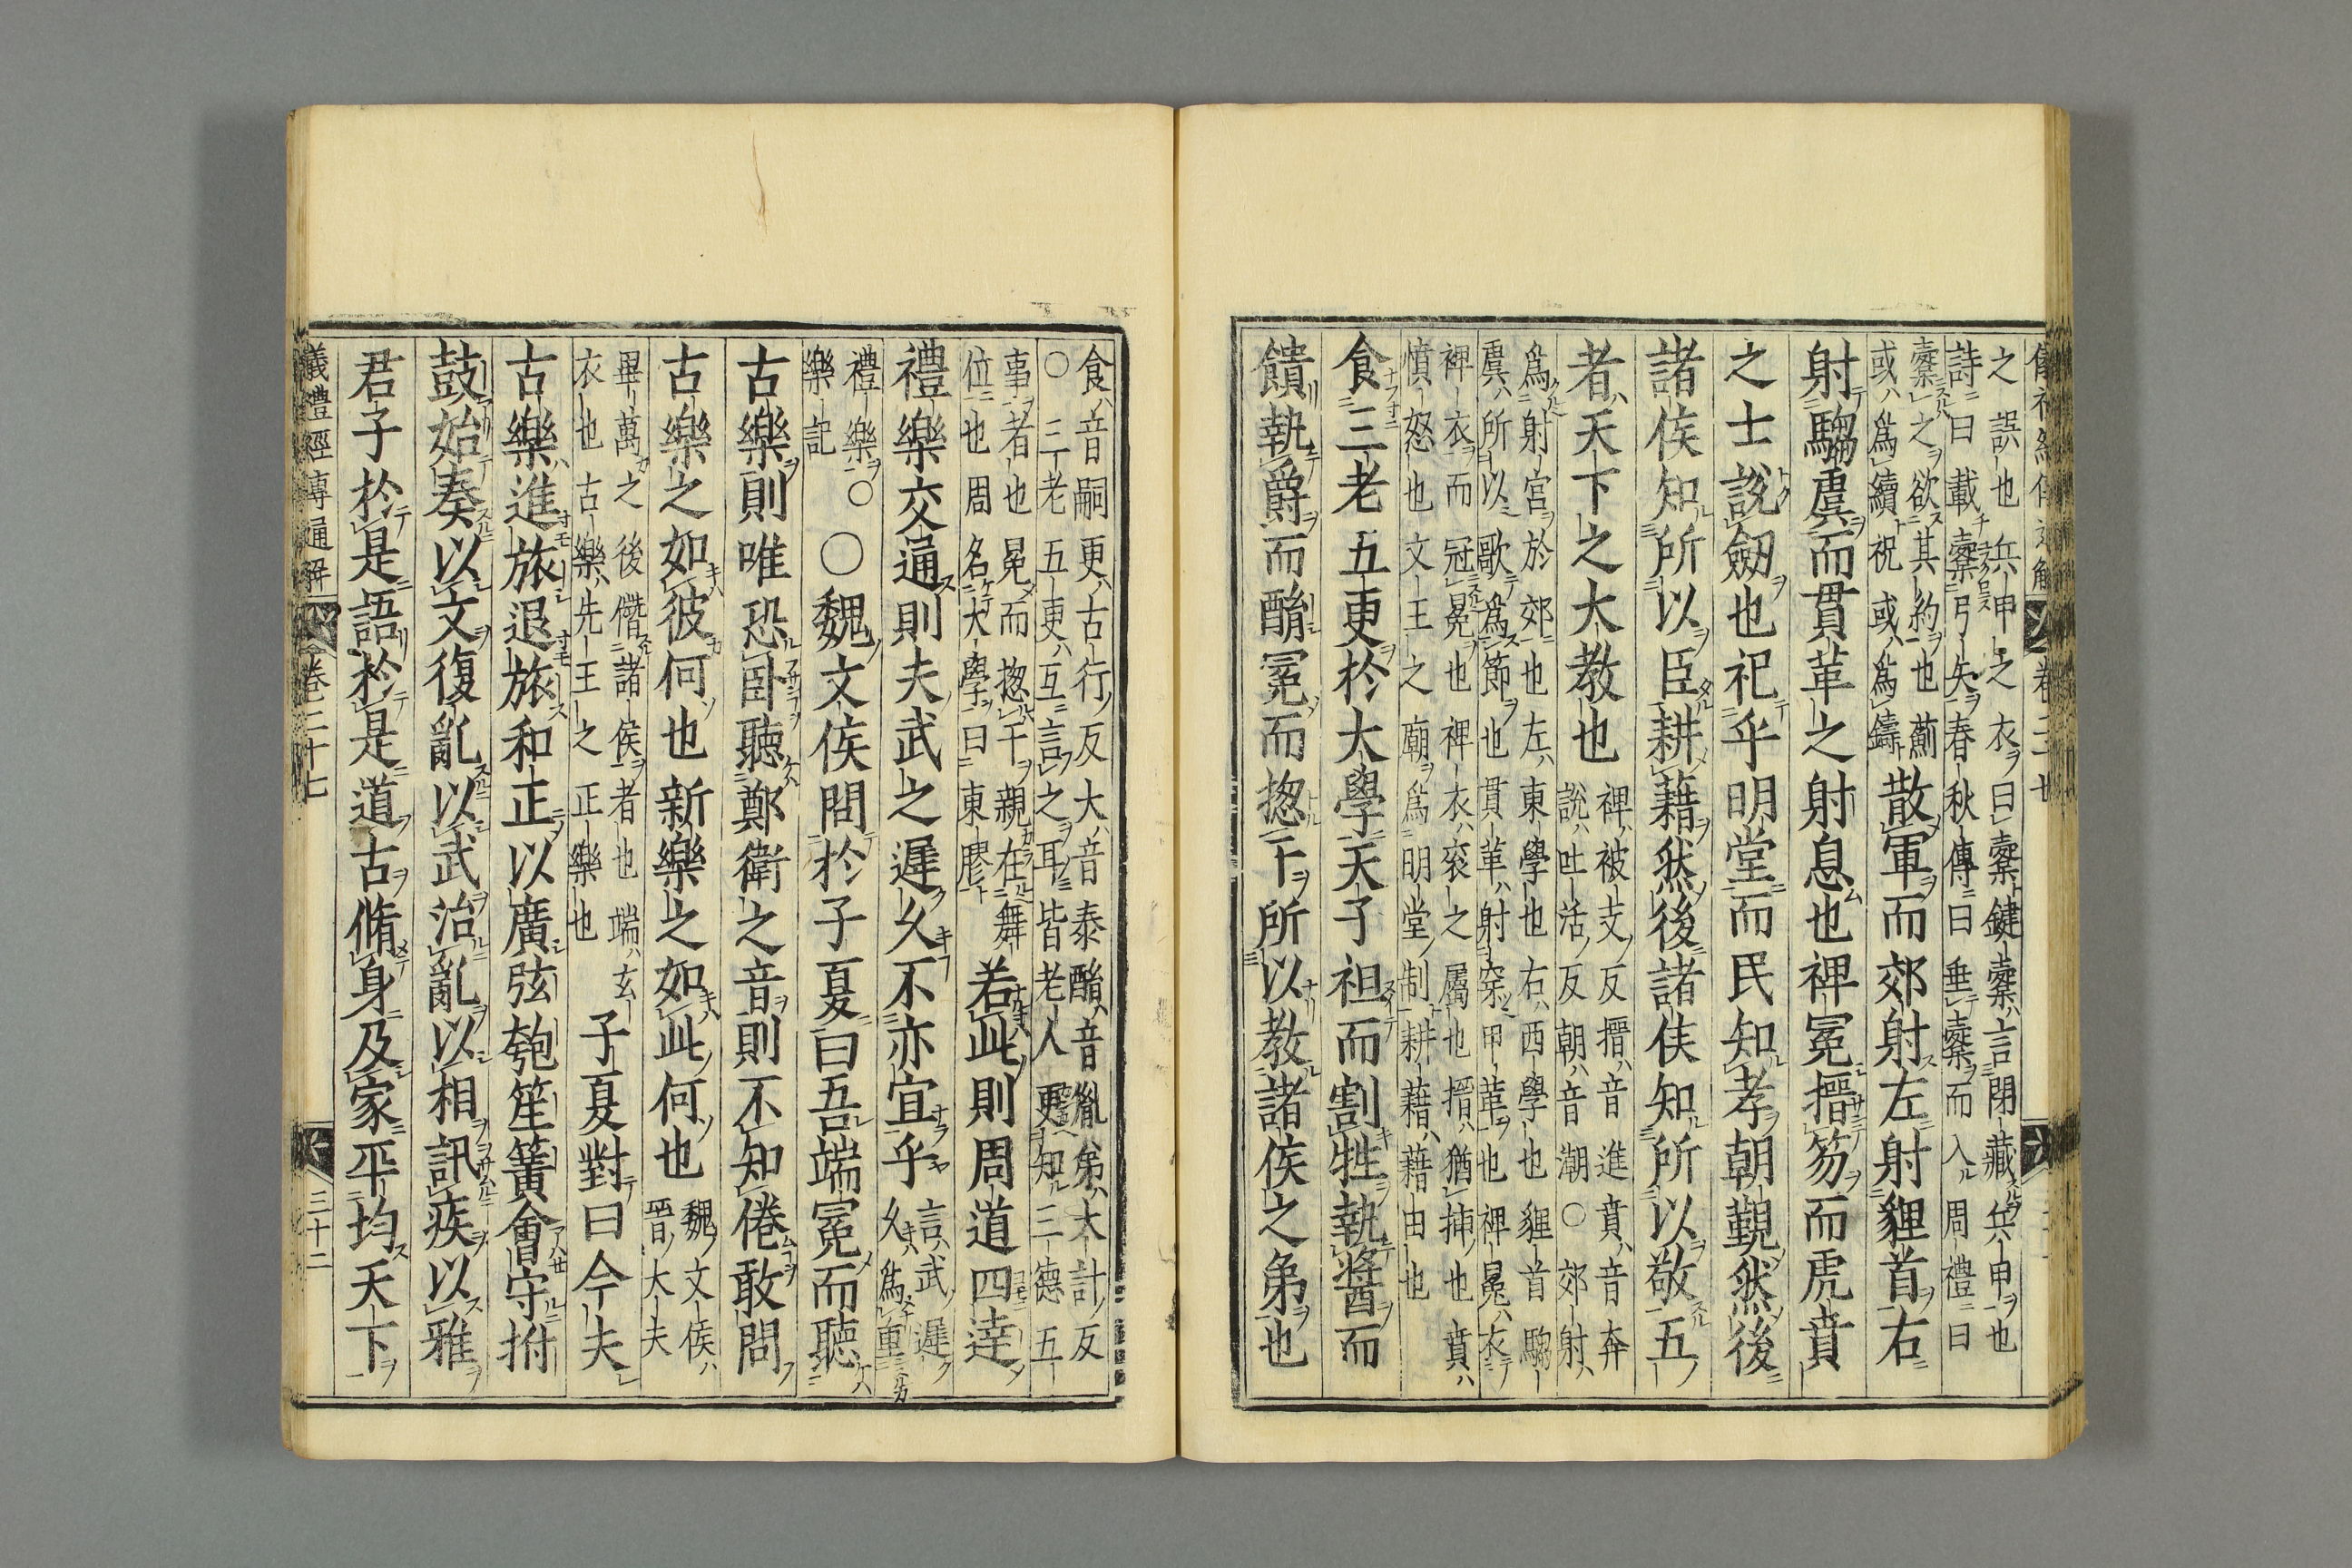 儀禮經傳通解 卷二十七
之誤也兵甲之衣曰櫜鍵櫜言閉藏兵甲也
詩曰載櫜弓矢春秋傳曰垂櫜而入周禮曰
櫜之欲其約也薊
或爲續祝或爲鑄
散軍而郊射左射貍首右
射騶虞而貫革之射息也裨冕搢笏而虎賁
之士說劒也祀乎明堂而民知孝朝覲然後
諸侯知所以臣耕藉然後諸侯知所以敬五
者天下之大教也
裨被支反搢音進賁音奔
說吐活反朝音潮○郊射
爲射宮於郊也左東學也右西學也貍首騶
虞所以歌爲節也貫革射穿甲革也裨冕衣
裨衣而冠冕也裨衣衮之屬也搢猶揷也賁
憤怒也文王之廟爲明堂制耕藉藉田也
食三老五更於大學天子袒而割牲執醬而
饋執爵而酳冕而揔干所以教諸侯之弟也
食音嗣更古行反大音泰酳音胤弟大計反
○三老五更互言之耳皆老人更知三德五
事者也冕而揔干親在舞
位也周名大學曰東膠
若此則周道四達
禮樂交通則夫武之遲久不亦宜乎
言武遲
久爲重
禮樂○
樂記
○魏文侯問於子夏曰吾端冕而聽
古樂則唯恐臥聽鄭衛之音則不知倦敢問
古樂之如彼何也新樂之如此何也
魏文侯
晉大夫
畢萬之後僭諸侯者也端玄
衣也古樂先王之正樂也
子夏對曰今夫
古樂進旅退旅和正以廣弦匏笙簧會守拊
鼓始奏以文復亂以武治亂以相訊疾以雅
君子於是語於是道古脩身及家平均天下
儀禮經傳通解 卷二十七 三十二